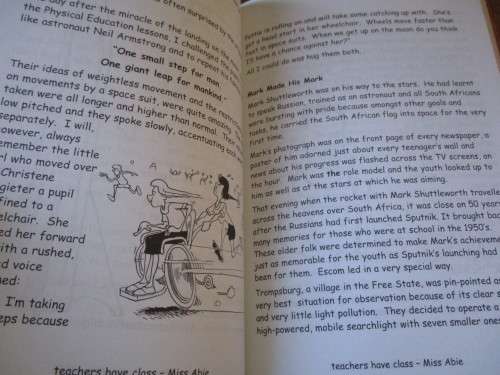 often surprised by the
day after the miracle of the landing on the moon
the Physical Education lessons, I challenged the
like astronaut Neil Armstrong and to repeat
"One small step for man,
One giant leap for mankind."
Their ideas of weightless movement and the
on movements by a space suit, were quite amazing.
taken were all longer and higher than normal. Their
low pitched and they spoke slowly, accentuating each
separately. I will,
however, always
remember the little
girl who moved over
Christene
gieter a pupil
fined to a
elchair. She
ed her forward
with a rushed,
ed voice
ned:
I'm taking
eps because
teachers have class – Miss Abie
is rolling on and will take some catching up with. She's
got a head start in her wheelchair. Wheels move faster than
feet in space suits. When we get up on the moon do you think
I'll have a chance against her?"
All I could do was hug them both.
Mark Made His Mark
Mark Shuttleworth was on his way to the stars. He had learnt
to speak Russian, trained as an astronaut and all South Africans
were bursting with pride because amongst other goals and
tasks, he carried the South African flag into space for the very
first time.
Mark's photograph was on the front page of every newspaper, a
poster of him adorned just about every teenager's wall and
news about his progress was flashed across the TV screens, on
the hour. Mark was the role model and the youth looked up to
him as well as at the stars at which he was aiming.
That evening when the rocket with Mark Shuttleworth travelle
across the heavens over South Africa, it was close on 50 years
after the Russians had first launched Sputnik. It brought back
many memories for those who were at school in the 1950's.
These older folk were determined to make Mark's achieveme
just as memorable for the youth as Sputnik's launching had
been for them. Escom led in a very special way.
Trompsburg, a village in the Free State, was pin-pointed as
very best situation for observation because of its clear s
and very little light pollution. They decided to operate a
high-powered, mobile searchlight with seven smaller ones
teachers have class – Miss Abie